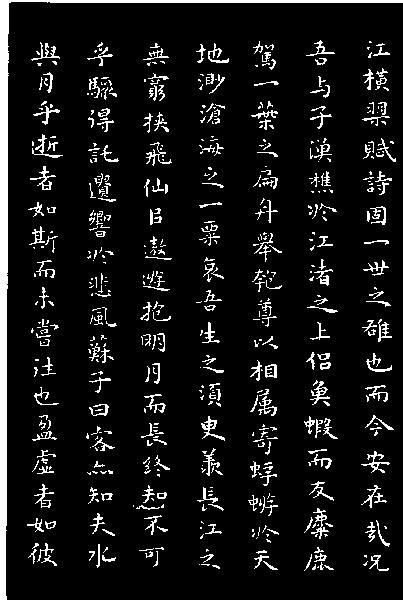 江橫槊賦詩固一世之雄也而今安在哉况
吾与子漁樵於江渚之上侶魚蝦而友麋鹿
駕一葉之扁舟舉匏尊以相属寄蜉蝣於天
地渺滄海之一粟哀吾生之須臾羨長江之
無窮挾飛仙以遨遊抱明月而長終知不可
乎驟得託遺響於悲風蘇子曰客亦知夫水
與月乎逝者如斯而未嘗往也盈虛者如彼